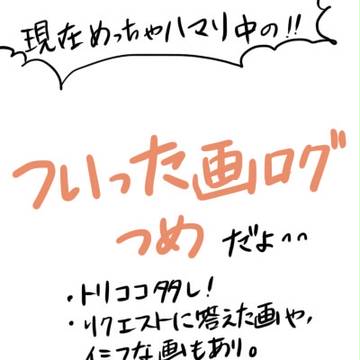 現在めっちゃハマり中の!!
ついった画ログ
つめ だよ^^
・トリココタタレ!
・リクエストに答えた画や,
イミフな画もあり。